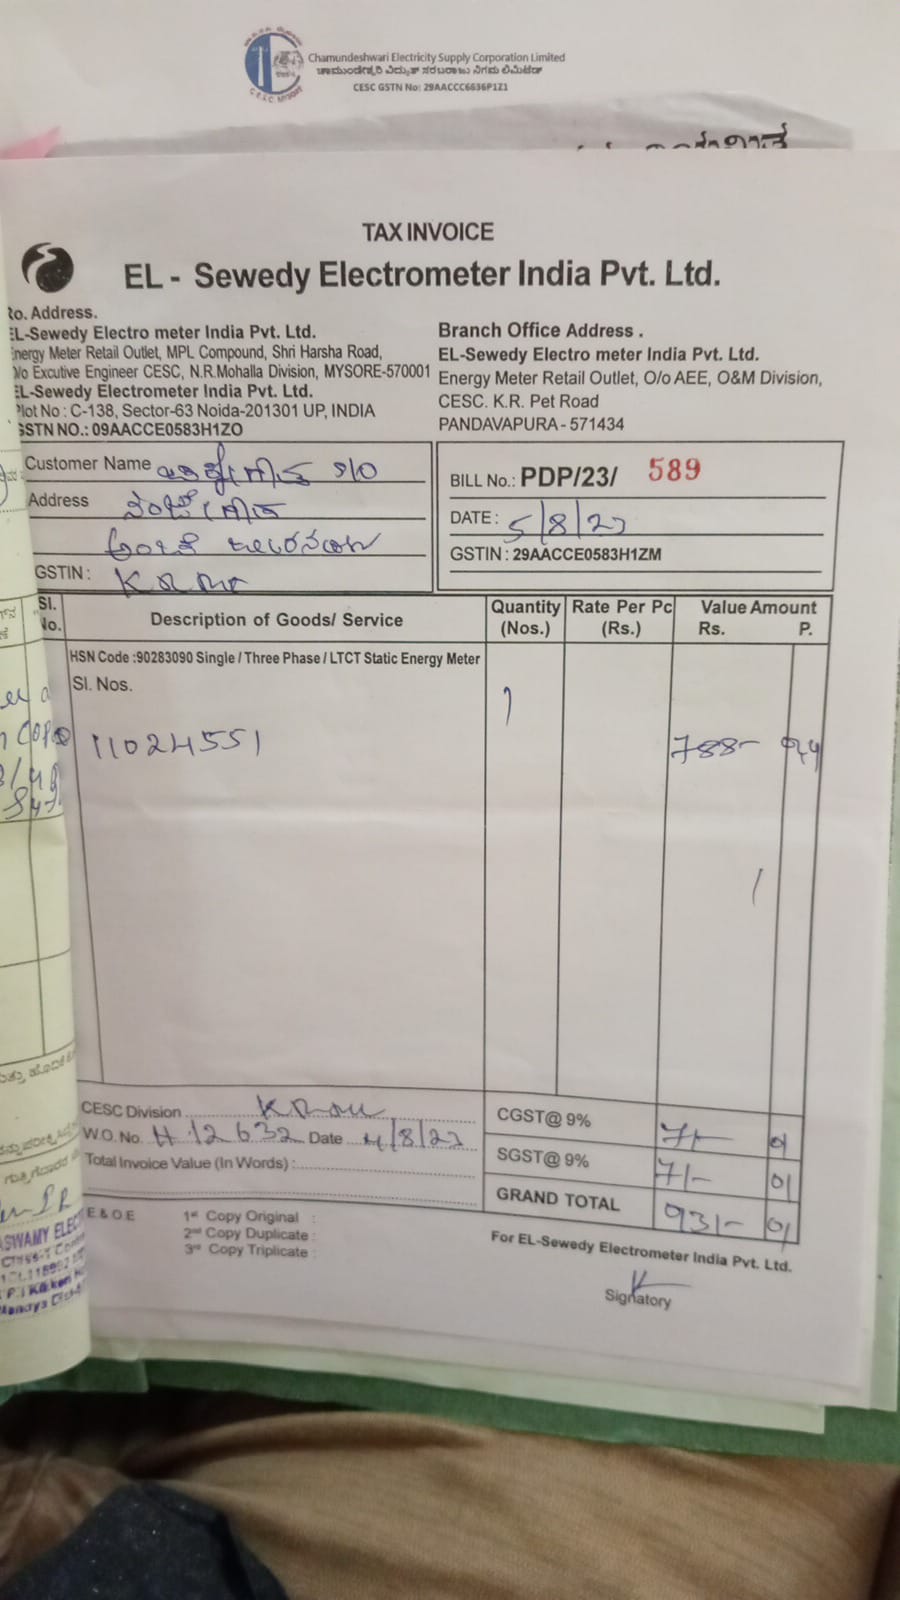 Chamundeshwari Electricity Supply Corporation Limited
ಚಾಮುಂಡೇಶ್ವರಿ ವಿದ್ಯುತ್ ಸರಬರಾಜು ನಿಗಮ ಲಿಮಿಟೆಡ್
CESC GSTN No: 29AACCC6636P1Z1
TAX INVOICE
EL - Sewedy Electrometer India Pvt. Ltd.
Ro. Address.
EL-Sewedy Electro meter India Pvt. Ltd.
Energy Meter Retail Outlet, MPL Compound, Shri Harsha Road,
O/o Excutive Engineer CESC, N.R.Mohalla Division, MYSORE-570001
EL-Sewedy Electrometer India Pvt. Ltd.
Plot No : C-138, Sector-63 Noida-201301 UP, INDIA
GSTN NO.: 09AACCE0583H1ZO
Branch Office Address .
EL-Sewedy Electro meter India Pvt. Ltd.
Energy Meter Retail Outlet, O/o AEE, O&M Division,
CESC. K.R. Pet Road
PANDAVAPURA - 571434
Customer Name S/O
Address
GSTIN :
BILL No.: PDP/23/ 589
DATE : 5/8/23
GSTIN : 29AACCE0583H1ZM
Sl. No. Description of Goods/ Service Quantity (Nos.) Rate Per Pc (Rs.) Value Amount Rs. P.
HSN Code :90283090 Single / Three Phase / LTCT Static Energy Meter
Sl. Nos.
11024551 1 788-
CESC Division
W.O. No. H 12632 Date 4/8/23
Total Invoice Value (In Words) :
CGST@ 9% 71- 01
SGST@ 9% 71- 01
GRAND TOTAL 931- 01
E & O E
1st Copy Original :
2nd Copy Duplicate :
3rd Copy Triplicate :
For EL-Sewedy Electrometer India Pvt. Ltd.
Signatory